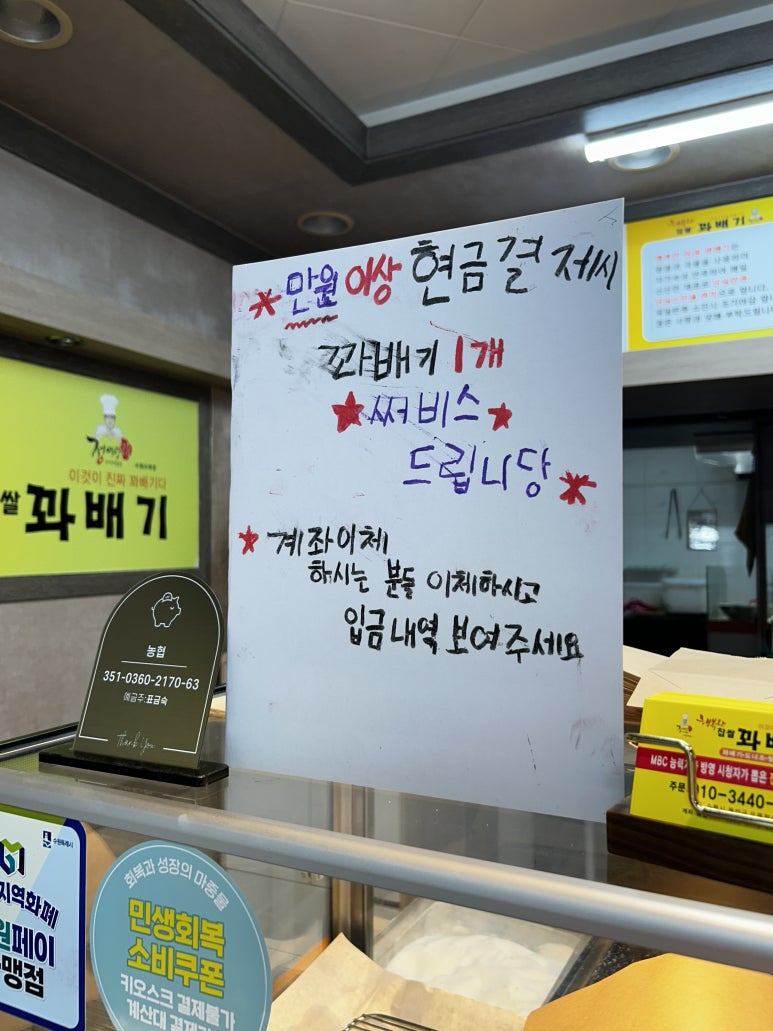 만원 이상 현금결제시
꽈배기 1개
써비스
드립니당
계좌이체
해시는 분들 이체하시고
입금내역 보여주세요
이것이 진짜 꽈배기다
쌀 꽈배기
농협
351-0360-2170-63
예금주:표금숙
Thank you
수원특례시
지역화폐
원페이
맹점
회복과 성장의 마중물
민생회복
소비쿠폰
키오스크 결제불가
계산대 결제
찹쌀 꽈배기
찹쌀 꽈배
MBC 능력자 방영 시청자가 뽑은
주문
010-3440-